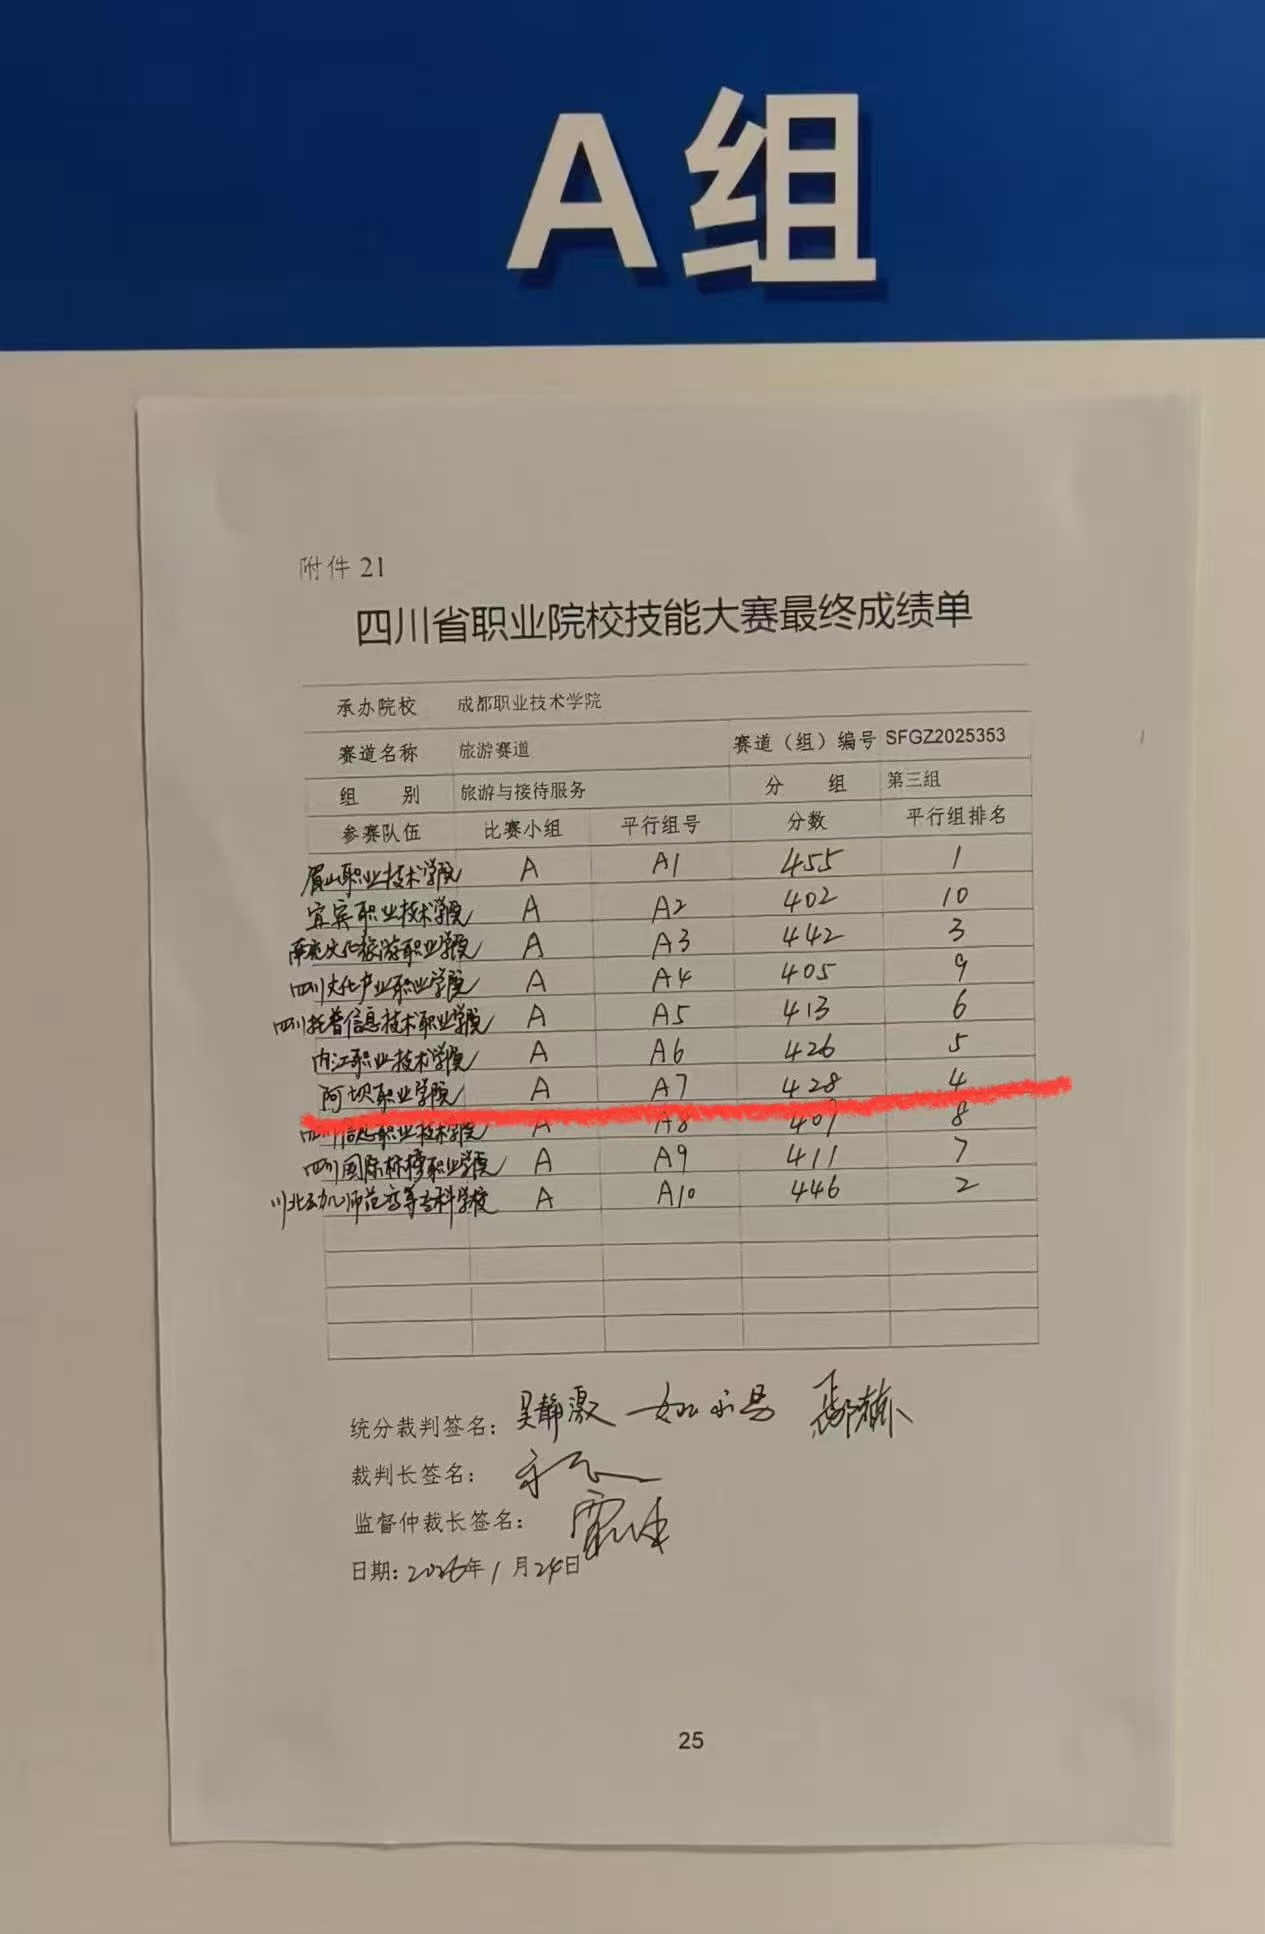 A组
附件 21
四川省职业院校技能大赛最终成绩单
承办院校 成都职业技术学院
赛道名称 旅游赛道 赛道（组）编号 SFGZ2025353
组 别 旅游与接待服务 分 组 第三组
参赛队伍 比赛小组 平行组号 分数 平行组排名
眉山职业技术学院 A A1 455 1
宜宾职业技术学院 A A2 402 10
南充文化旅游职业学院 A A3 442 3
四川文化产业职业学院 A A4 405 9
四川托普信息技术职业学院 A A5 413 6
内江职业技术学院 A A6 426 5
阿坝职业学院 A A7 428 4
四川信息职业技术学院 A A8 8
四川国际标榜职业学院 A A9 411 7
川北幼儿师范高等专科学校 A A10 446 2
统分裁判签名：
裁判长签名：
监督仲裁长签名：
日期：2026年1月24日
25